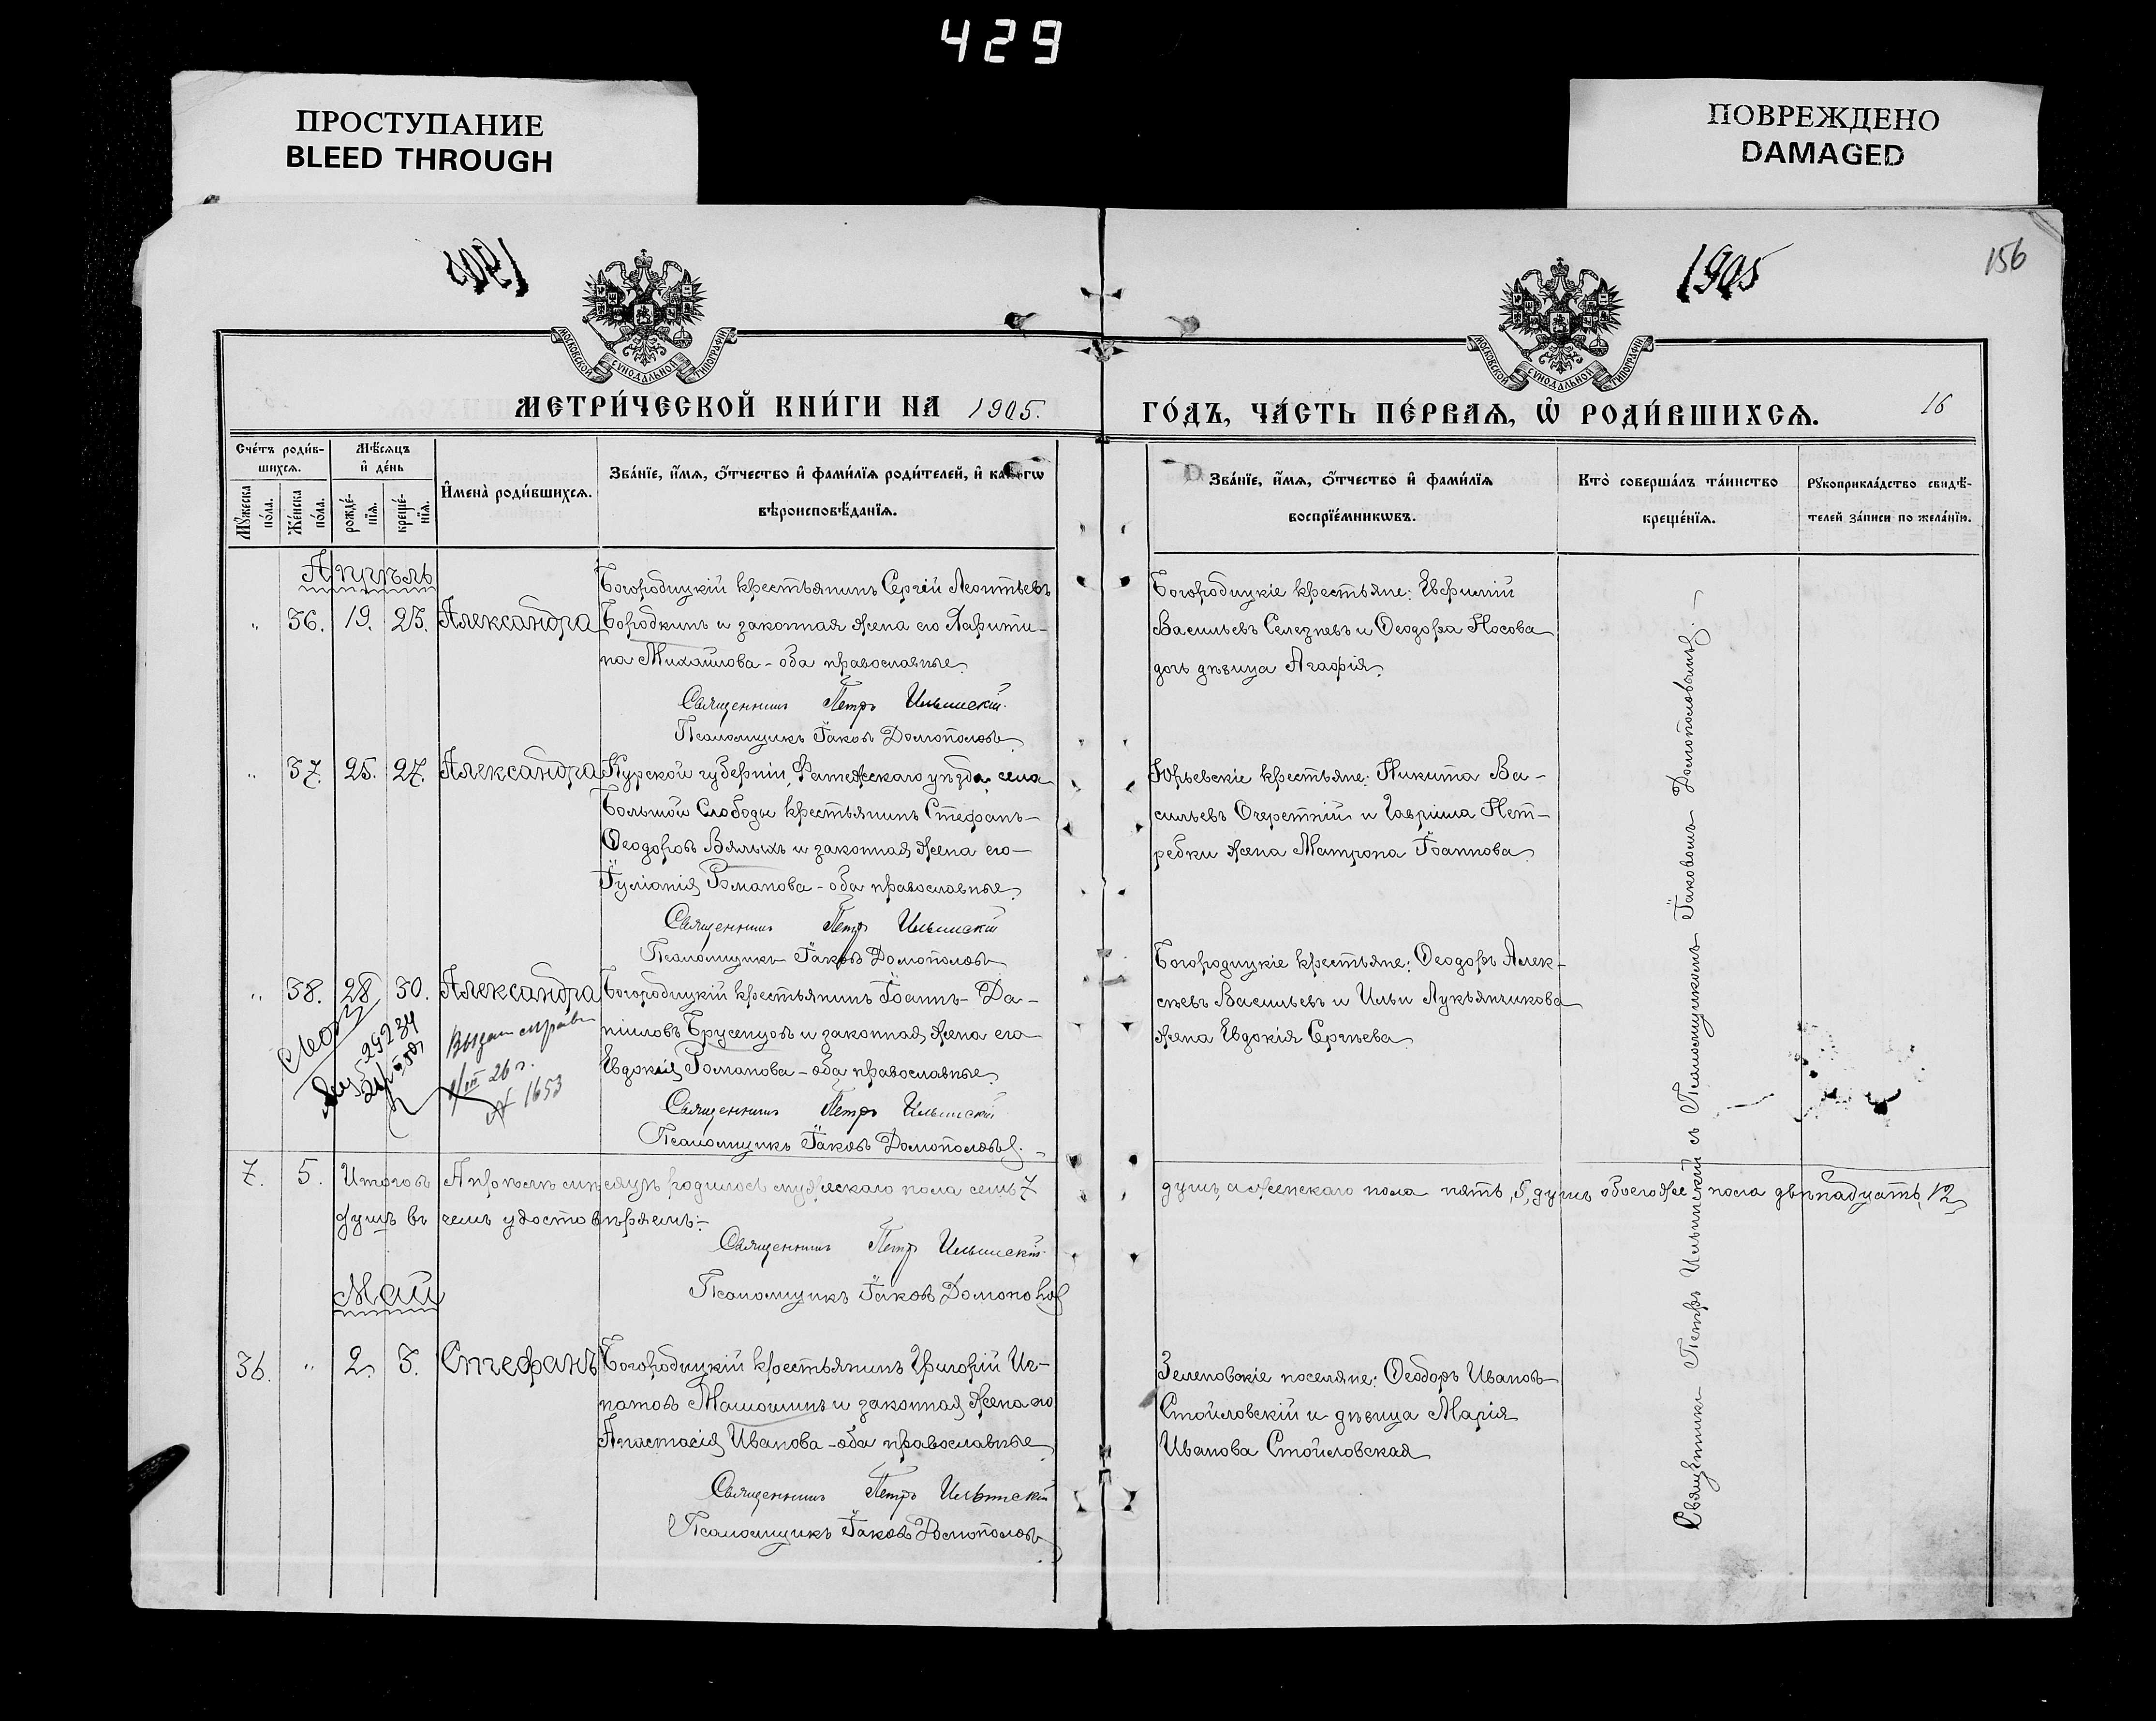 429
ПРОСТУПАНИЕ
BLEED THROUGH
ПОВРЕЖДЕНО
DAMAGED
1905
1905
156
МОСКОВСКОЙ СѴНОДАЛЬНОЙ ТИПОГРАФІИ
МОСКОВСКОЙ СѴНОДАЛЬНОЙ ТИПОГРАФІИ
МЕТРИ́ЧЕСКОЙ КНИ́ГИ НА 1905.
ГО́ДЪ, ЧА́СТЬ ПЕ́РВАѦ, Ѡ҆ РОДИ́ВШИХСѦ.
16
Сче́тъ роди́в-
шихсѧ.
Мѣ́сѧцъ
и҆ де́нь
Мꙋ́жеска по́ла.
Же́нска по́ла.
рожде́-нїѧ.
креще́-нїѧ.
И҆мена̀ роди́вшихсѧ.
Зва́нїе, и҆́мѧ, ѻ҆́тчество и҆ фами́лїѧ роди́телей, и҆ како́гѡ
вѣроисповѣ́данїѧ.
Зва́нїе, и҆́мѧ, ѻ҆́тчество и҆ фами́лїѧ
воспрїе́мникѡвъ.
Кто̀ соверша́лъ та́инство
креще́нїѧ.
Рꙋкоприкла́дство свидѣ́-
телей за́писи по жела́нїю.
Апрѣль
" 36. 19. 23. Александра
Богородицкій крестьянинъ Сергѣй Леонтьевъ
Бородкинъ и законная жена его Харити-
на Михайлова - оба православные
Священникъ Петръ Ильинскій.
Псаломщикъ Іаковъ Домополовъ
Богородицкіе крестьяне: Евфимій
Васильевъ Селезневъ и Ѳеодора Носова
дочь дѣвица Агафія
" 37. 25. 27. Александра
Курской губерніи, Фатежскаго уѣзда, села
Большой Слободы крестьянинъ Стефанъ-
Ѳеодоровъ Вялыхъ и законная жена его-
Іуліанія Романова - оба православные
Священникъ Петръ Ильинскій
Псаломщикъ Іаковъ Домополовъ
Юрьевскіе крестьяне: Никита Ва-
сильевъ Очеретній и Гавріила Нет-
ребки жена Матрона Іоаннова
" 38. 28. 30. Александра
Богородицкій крестьянинъ Іоаннъ- Да-
ніиловъ Брусенцовъ и законная жена его
Евдокія Романова - оба православные
Священникъ Петръ Ильинскій
Псаломщикъ Іаковъ Домополовъ.
Богородицкіе крестьяне: Ѳеодоръ Алек-
сѣевъ Васильевъ и Ильи Лукьянчикова
жена Евдокія Сергѣева
29234
Выдан
26 г.
№ 1653
7. 5. Итого въ Апрѣлѣ мѣсяцѣ родилось мужескаго пола семь 7
душъ, а женскаго пола пять, 5, душъ обоего же пола двѣнадцать, 12
душъ въ чемъ удостовѣряемъ:-
Священникъ Петръ Ильинскій.
Псаломщикъ Іаковъ Домополов
Май
36. " 2. 3. Стефанъ
Богородицкій крестьянинъ Григорій Иг-
натовъ Мамошинъ и законная жена его
Анастасія Иванова - оба православные
Священникъ Петръ Ильинскій
Псаломщикъ Іаковъ Домополовъ
Зеленовскіе поселяне: Ѳеодоръ Ивановъ
Стойловскій и дѣвица Марія
Иванова Стойловская
Священникъ Петръ Ильинскій съ Псаломщикомъ Іаковомъ Домополовымъ.